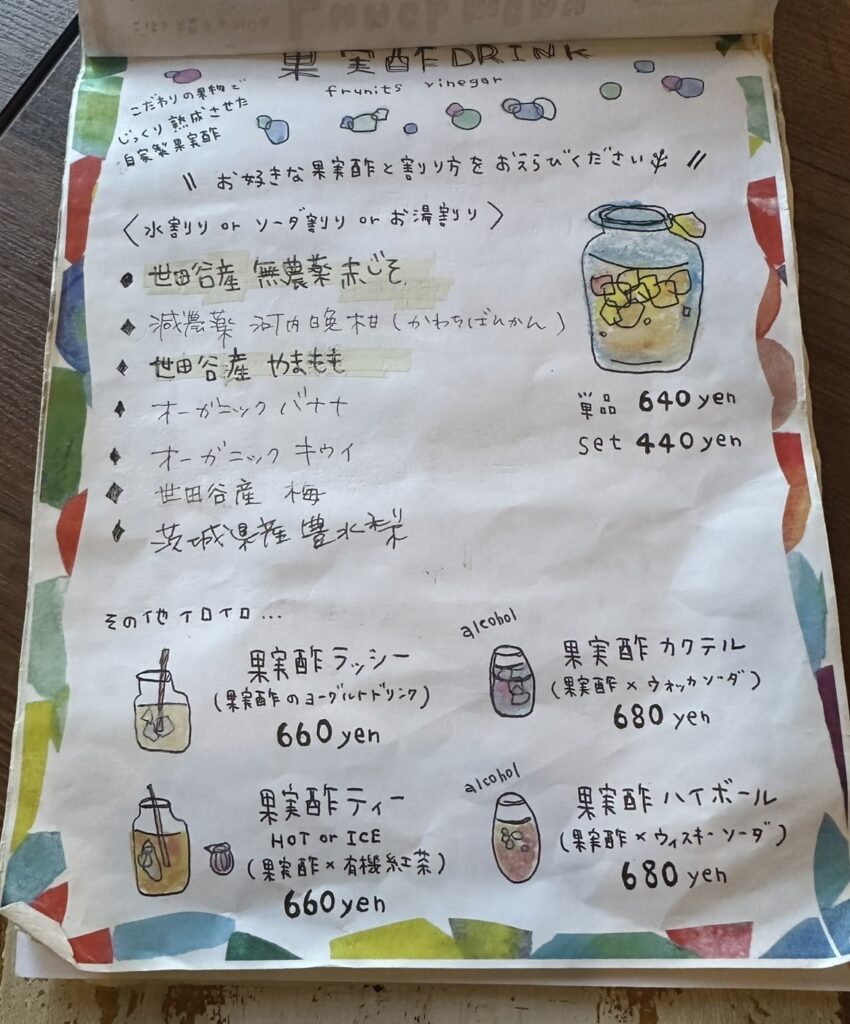 果実酢DRINK
frunits vinegar
こだわりの果物で
じっくり熟成させた
自家製果実酢
\\ お好きな果実酢と割り方をおえらびください //
〈水割り or ソーダ割り or お湯割り〉
世田谷産 無農薬 赤じそ
減農薬 河内晩柑(かわちばんかん)
世田谷産 やまもも
オーガニック バナナ
オーガニック キウイ
世田谷産 梅
茨城県産 豊水梨
単品 640yen
set 440yen
その他イロイロ...
果実酢 ラッシー
(果実酢のヨーグルトドリンク)
660yen
alcohol
果実酢 カクテル
(果実酢×ウォッカソーダ)
680yen
果実酢 ティー
HOT or ICE
(果実酢×有機紅茶)
660yen
alcohol
果実酢 ハイボール
(果実酢×ウィスキーソーダ)
680yen